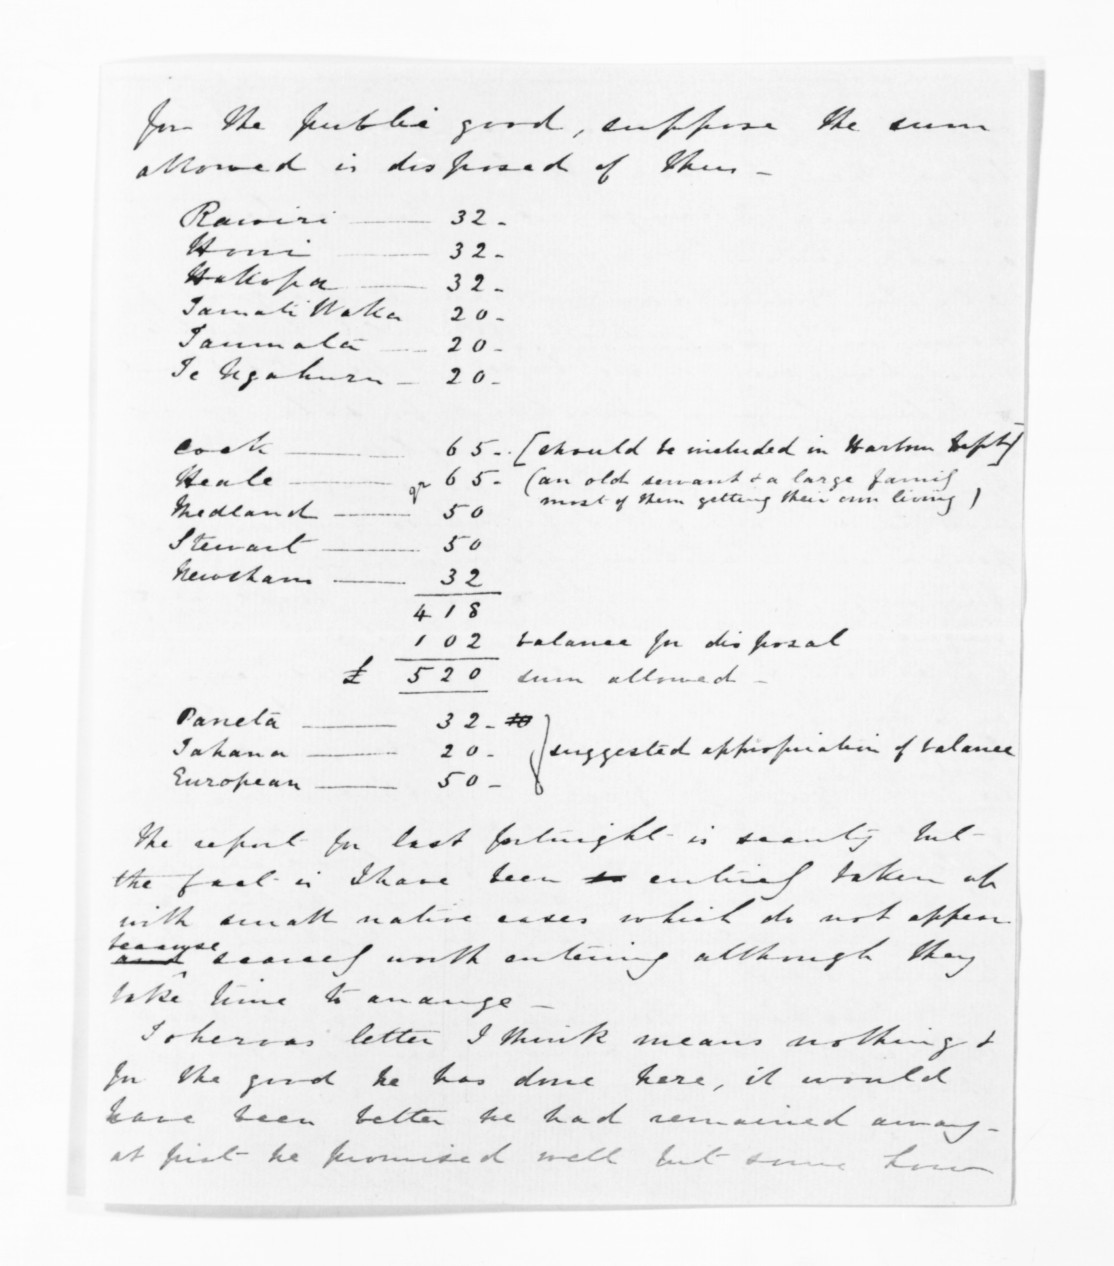 for the public good, suppose the sum
allowed is disposed of thus -
Rawiri 32 -
Honi 32 -
Hakopa 32 -
Tamati Waka 20 -
Taumata 20 -
Te Ngahuru - 20 -
Cook 65 - [should be included in Harbour Dept]
Heale 65 - (an old servant & a large family
most of them getting their own living)
Medland 50
Stewart 50
Newsham 32
418
102 balance for disposal
£ 520 sum allowed -
Paneta 32 -
Tahana 20 - suggested appropriation of balance
European 50 -
The report for last fortnight is scanty but
the fact is I have been to entirely taken up
with small native cases which do not appear
because
and scarcely worth entering although they
take time to arrange -
Tohervas letter I think means nothing &
for the good he has done here, it would
have been better he had remained away -
at first he promised well but some how